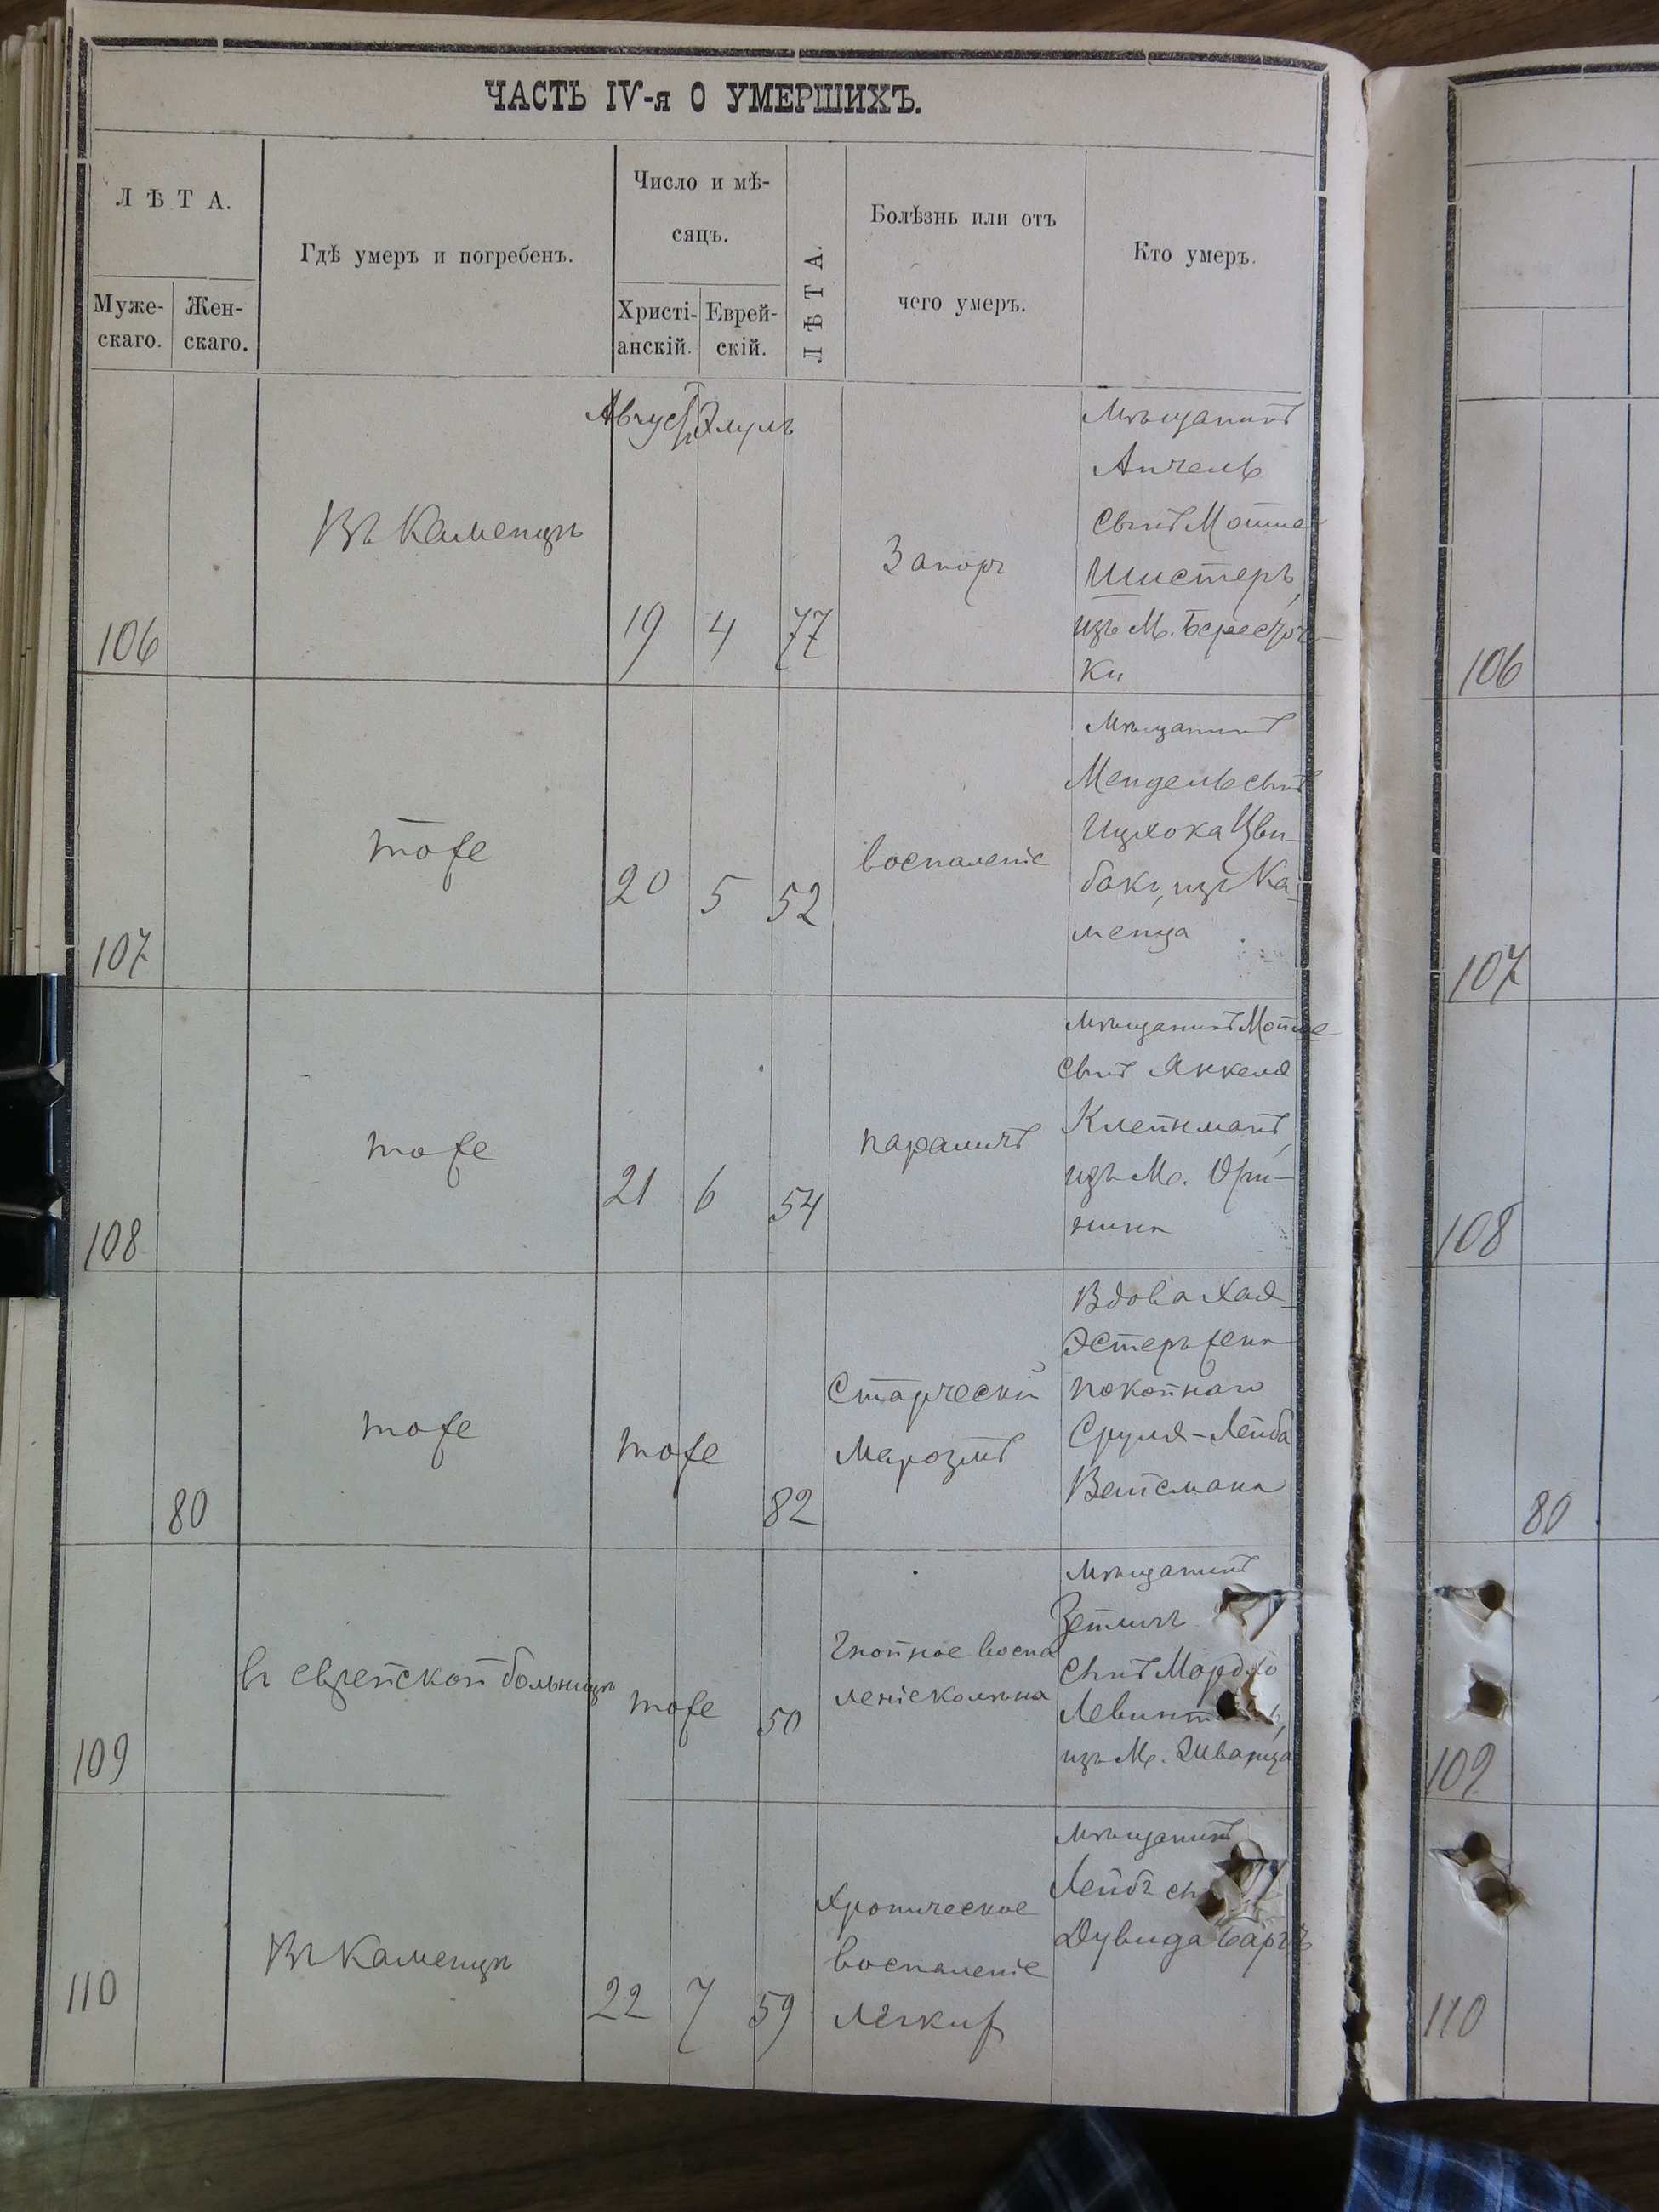 ЧАСТЬ IV-я О УМЕРШИХЪ.
ЛѢТА.
Муже-
скаго.
Жен-
скаго.
Гдѣ умеръ и погребенъ.
Число и мѣ-
сяцъ.
Христі-
анскій.
Еврей-
скій.
ЛѢТА.
Болѣзнь или отъ
чего умеръ.
Кто умеръ.
106
Въ Каменцѣ
Августъ
19
Элулъ
4
77
Запоръ
Мѣщанинъ
Анчель
сынъ Мотше
Шистеръ,
изъ М. Берестеч-
ки
106
107
тоже
20
5
52
воспаленіе
Мѣщанинъ
Мендель сынъ
Ицхока Цви-
бакъ, изъ Ка-
менца
107
108
тоже
21
6
54
параличъ
Мѣщанинъ Мотше
сынъ Янкеля
Клейнманъ,
изъ М. Ори-
нина
108
80
тоже
тоже
82
Старческій
Маразмъ
Вдова Хая-
Эстеръ жена
покойнаго
Сруля-Лейба
Вайсмана
80
109
въ еврейской больницѣ
тоже
50
Гнойное воспа
леніе колѣна
Мѣщанинъ
Зейликъ
сынъ Мордко
изъ М. Жванца
109
110
Въ Каменцѣ
22
7
59
Хроническое
воспаленіе
легкихъ
Мѣщанинъ
Лейбъ
Дувида
110